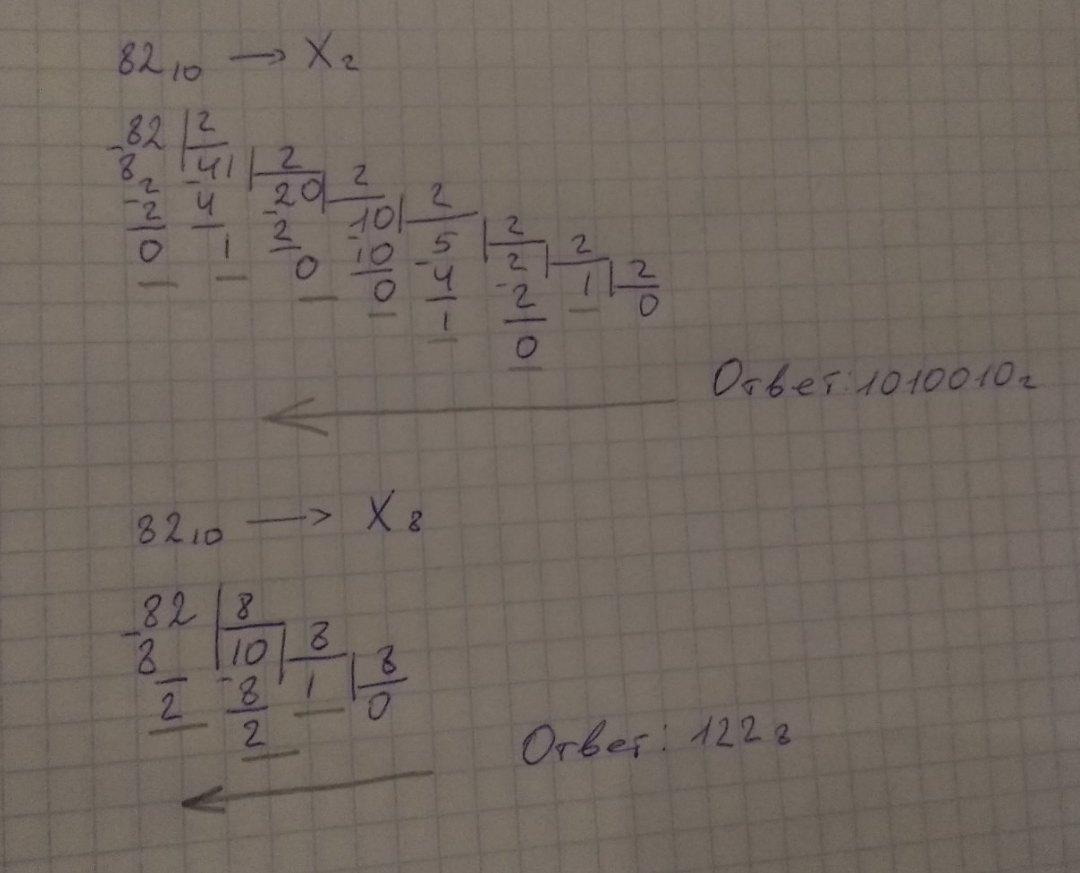 82₁₀ → X₂
-82 | 2
8₂ -41 | 2
-2 4 -20 | 2
0 1 2 -10 | 2
0 10 -5 | 2
0 4 -2 | 2
1 2 1 | 2
0 0
Ответ: 1010010₂
82₁₀ → X₈
-82 | 8
8 10 | 8
2 -8 1 | 8
2 0
Ответ: 122₈